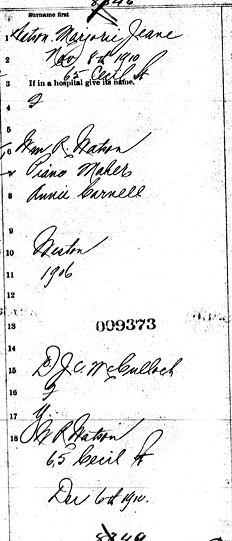 8848
Surname first
1 Watson. Marjorie Jeane
2 Nov 8th 1910
3 65 Cecil St
If in a hospital give its name.
4 F
5
6 Wm. R. Watson
Piano Maker
8 Annie Carnell
9
10 Weston
11 1906
12
13 009373
14
15 Dr J. C. McCulloch
16 F
17 Y.
18 W R Watson
65 Cecil St
Dec 6th 1910.
8849